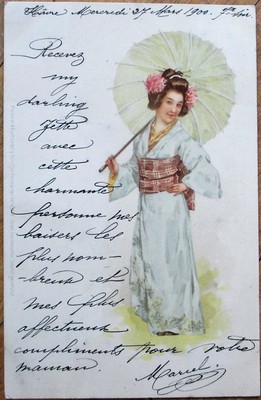 Hâvre Mercredi 27 Mars 1900.
Recevez
my
darling
Jette
avec
cette
charmante
personne mes
baisers les
plus nom-
breux et
mes plus
affectueux
compliments pour votre
maman.
Marcel.